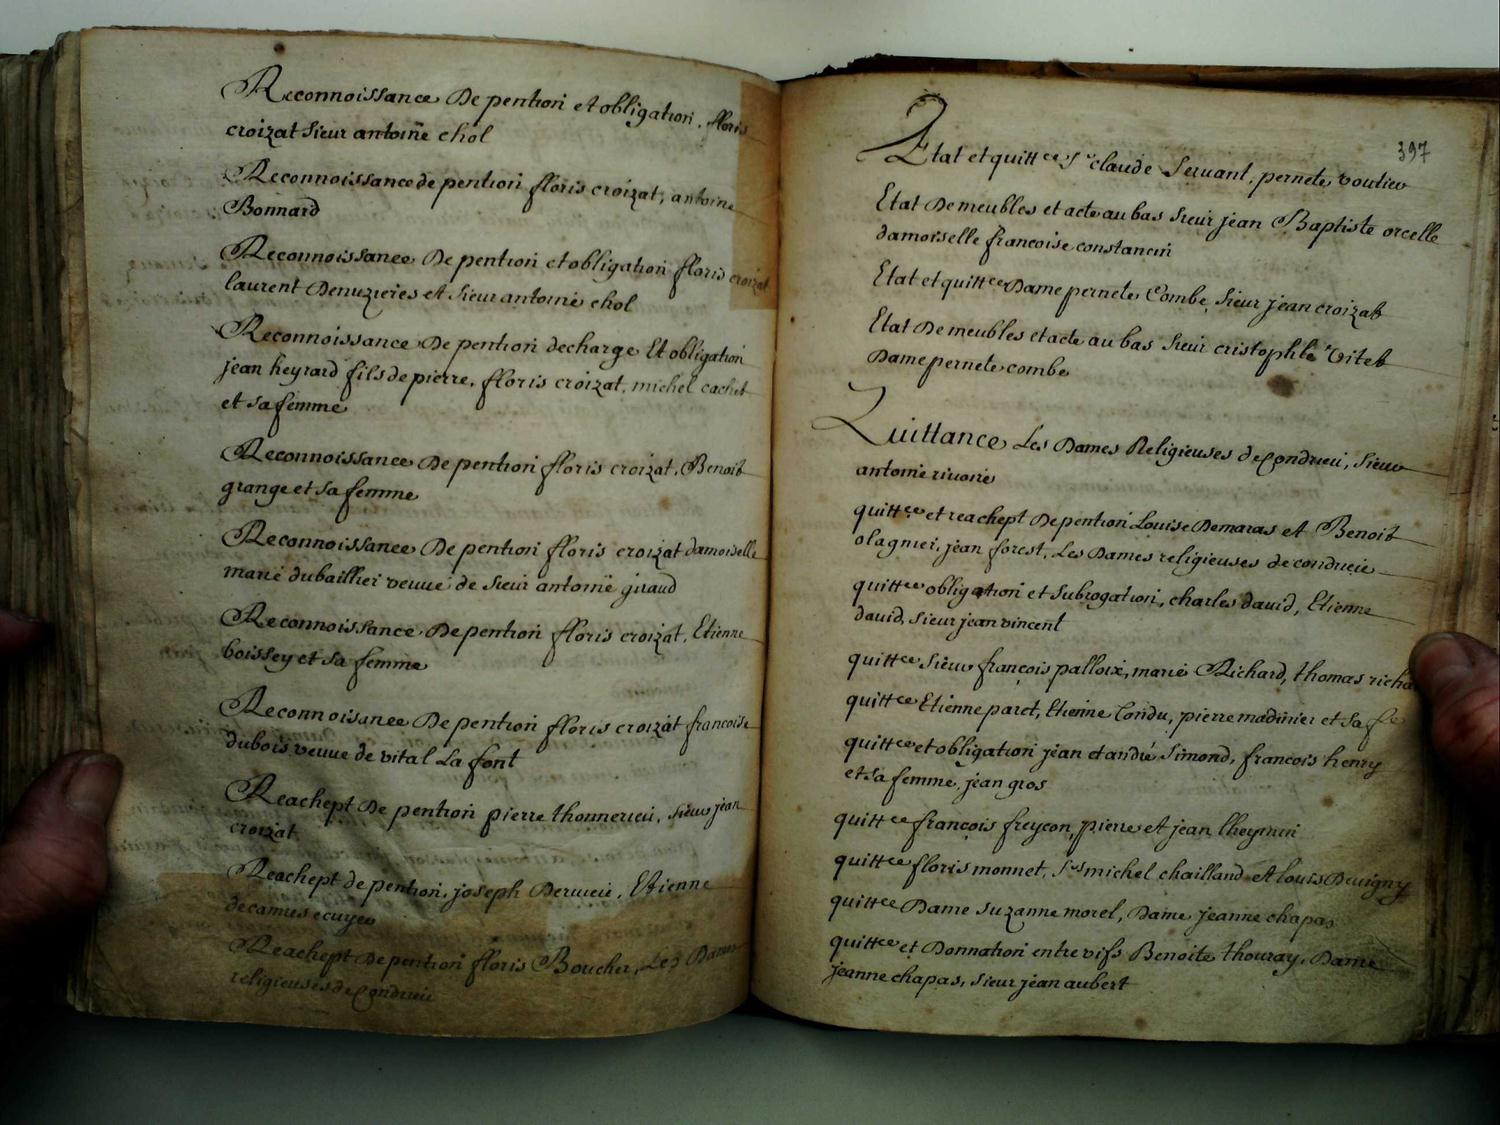 Reconnoissance De pention et obligation. floris
croizat sieur antoine chol
Reconnoissance de pention floris croizat, antoine
Bonnard
Reconnoissance De pention et obligation floris croizat
laurent Denuzieres et sieur antoine chol
Reconnoissance De pention decharge Et obligation
jean heyrard fils de pierre, floris croizat, michel cachet
et sa femme
Reconnoissance De pention floris croizat, Benoit
grange et sa femme
Reconnoissance De pention floris croizat damoiselle
marie dubaillier veuve de sieur antoine giraud
Reconnoissance De pention floris croizat, Etienne
boissey et sa femme
Reconnoissance De pention floris croizat francoise
dubois veuve de vital La font
Reachept De pention pierre thonnerieu, sieur jean
croizat
Reachept de pention, joseph Dervieu, Etienne
decamus ecuyer
Reachept De pention floris Boucher, Les Dames
religieuses de Condrieu
397
Etat et quittce Sr claude Servant, pernete voutier
Etat De meubles et acte au bas sieur jean Baptiste orcelle
damoiselle francoise constancin
Etat et quittce Dame pernete Combe, sieur jean croizat
Etat De meubles et acte au bas sieur cristophle Vitet
Dame pernete combe
Quittance Les Dames Religieuses de Condrieu, sieur
antoine rivoire
quittce et reachept De pention Louise Demaras et Benoit
olagnier, jean forest, Les Dames religieuses de condrieu
quittce obligation et subrogation, charles david, Etienne
david, sieur jean vincent
quittce sieur françois palloix, marie Richard, thomas richa
quittce Etienne paret, Etienne Condu, pierre madinier et sa fe
quittce et obligation jean et andré Simond, francois henry
et sa femme, jean gros
quittce françois freycon, pierre et jean lheymin
quittce floris monnet, Srs michel chailland et Louis Devigny
quittce Dame suzanne morel, Dame jeanne chapas
quittce et Donnation entre vifs Benoite thouray, Dame
jeanne chapas, sieur jean aubert